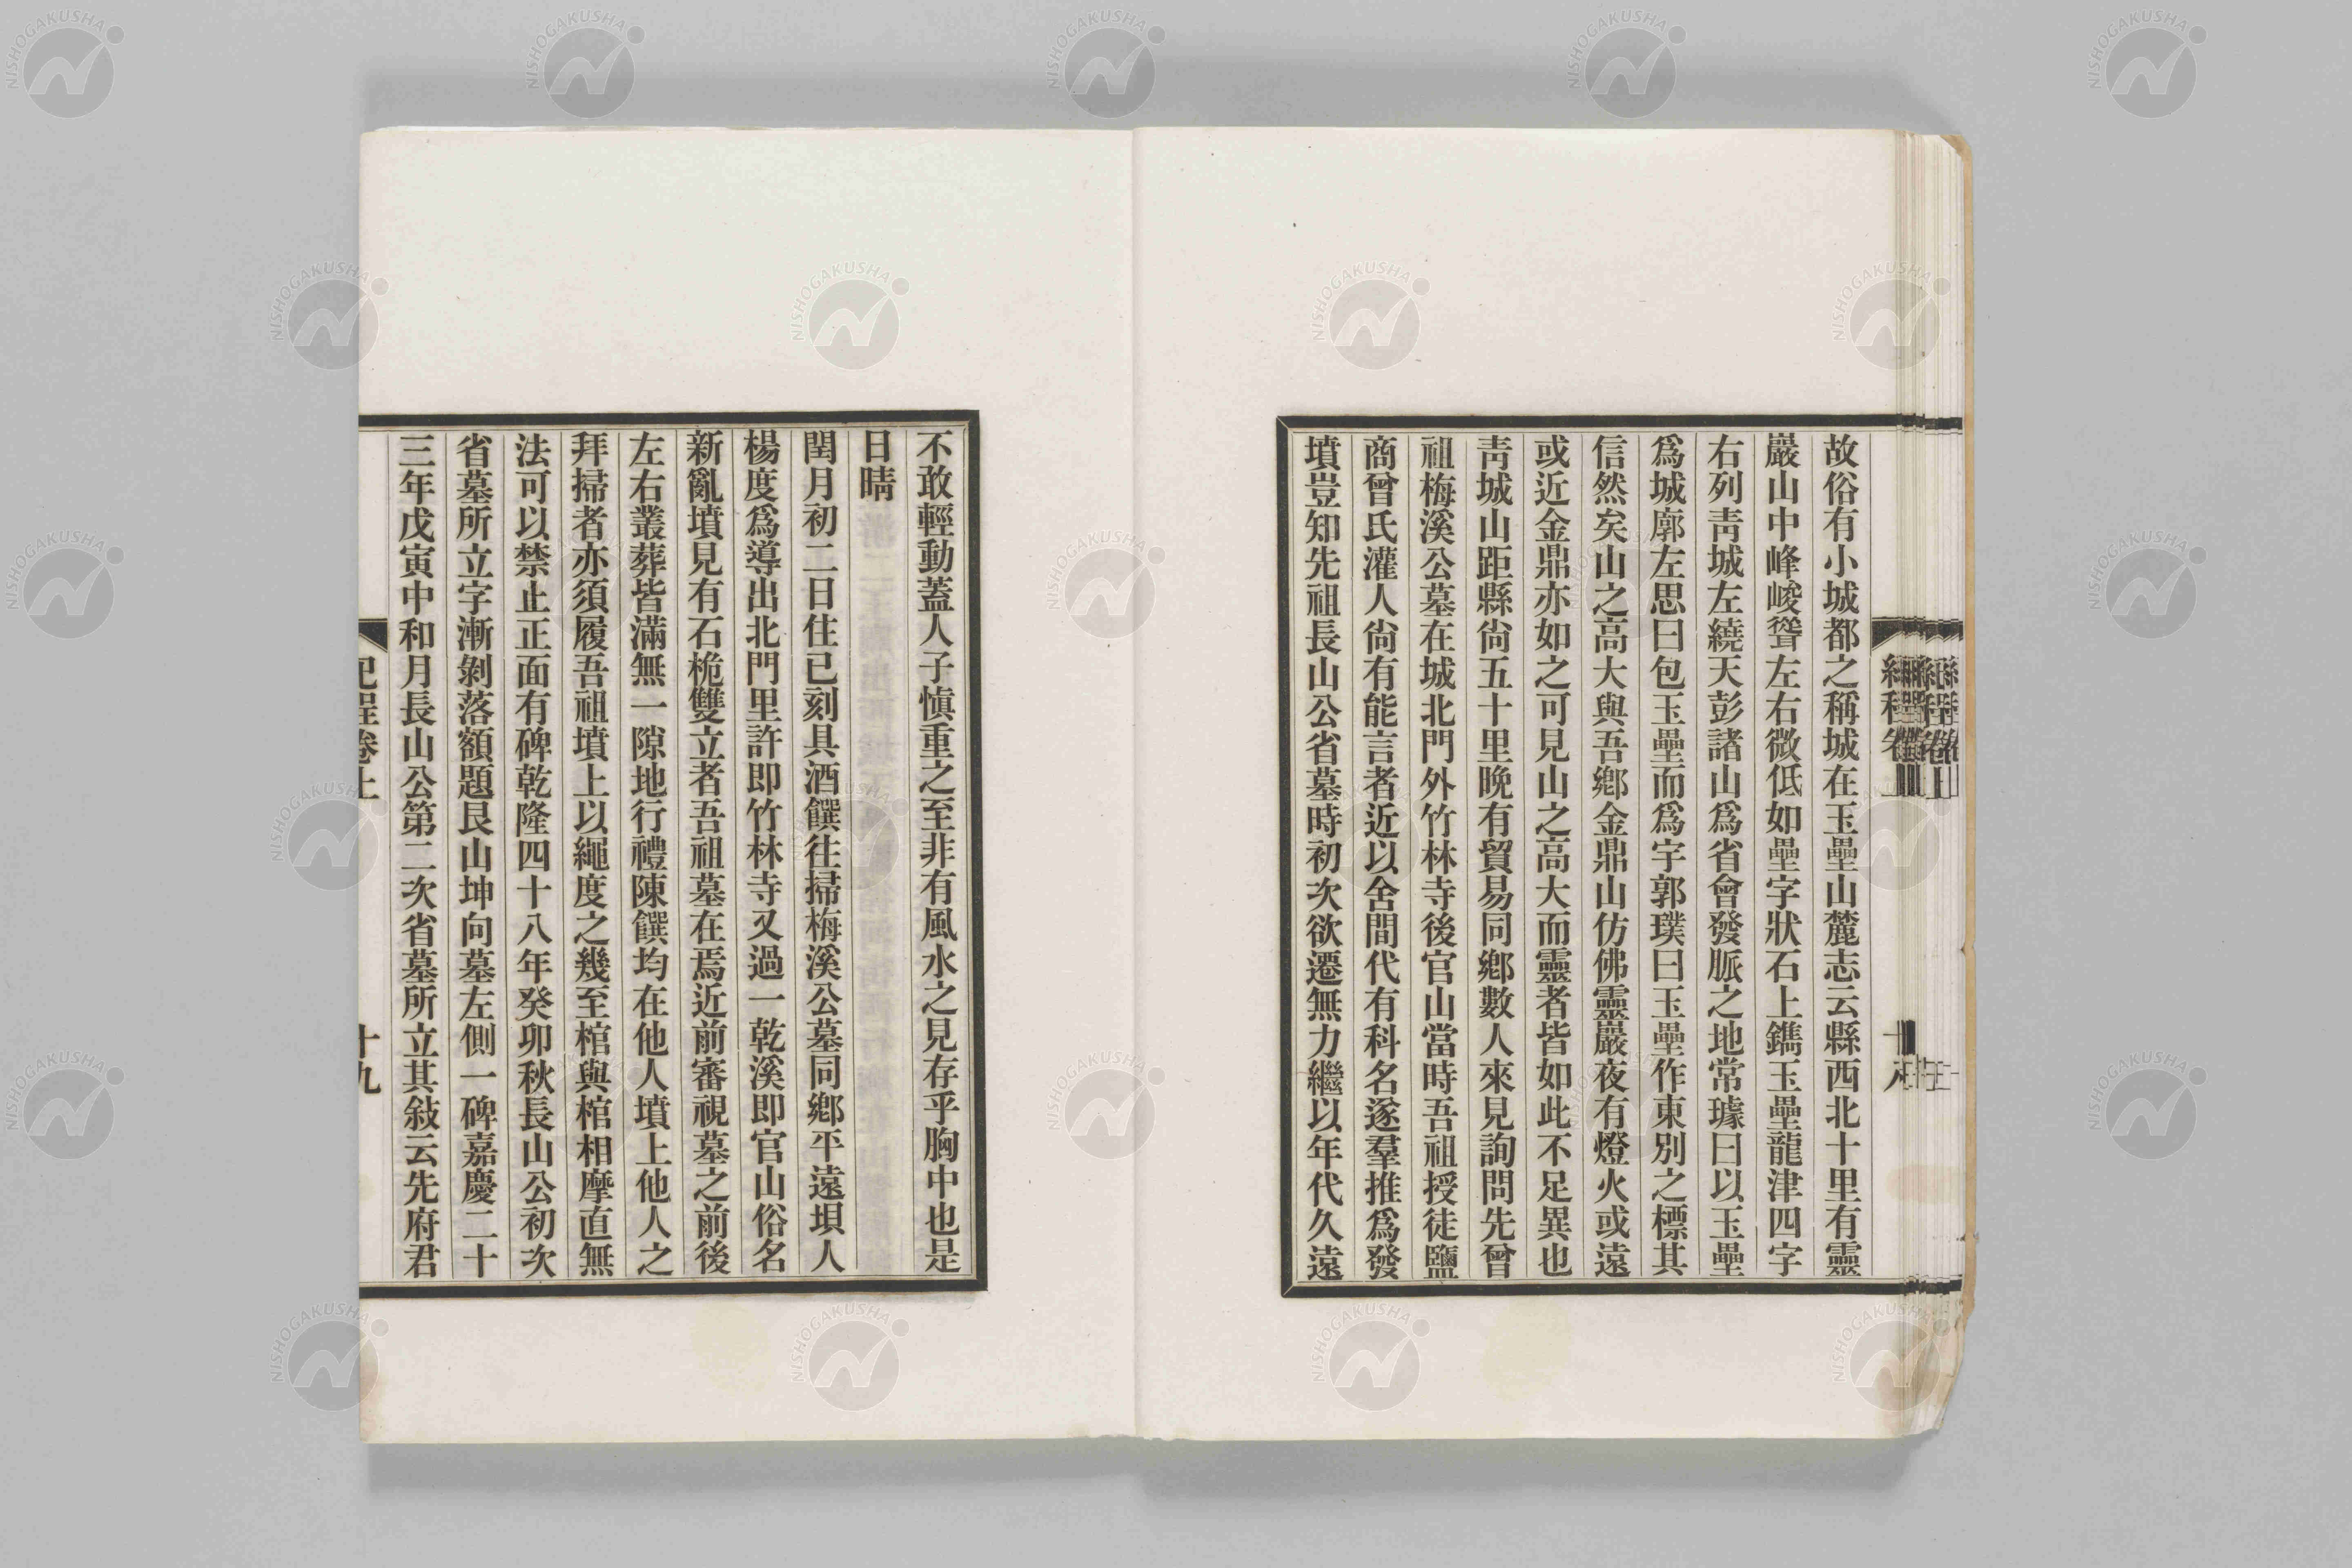 故俗有小城都之稱城在玉壘山麓志云縣西北十里有靈
巖山中峰峻聳左右微低如壘字狀石上鐫玉壘龍津四字
右列靑城左繞天彭諸山爲省會發脈之地常璩曰以玉壘
爲城廓左思曰包玉壘而爲宇郭璞曰玉壘作東別之標其
信然矣山之高大與吾鄕金鼎山仿佛靈巖夜有燈火或遠
或近金鼎亦如之可見山之高大而靈者皆如此不足異也
靑城山距縣尙五十里晚有貿易同鄕數人來見詢問先曾
祖梅溪公墓在城北門外竹林寺後官山當時吾祖授徒鹽
商曾氏灌人尙有能言者近以舍間代有科名遂羣推爲發
墳豈知先祖長山公省墓時初次欲遷無力繼以年代久遠
不敢輕動蓋人子愼重之至非有風水之見存乎胸中也是
日晴
閏月初二日住已刻具酒饌往掃梅溪公墓同鄕平遠垻人
楊度爲導出北門里許即竹林寺又過一乾溪即官山俗名
新亂墳見有石桅雙立者吾祖墓在焉近前審視墓之前後
左右叢葬皆滿無一隙地行禮陳饌均在他人墳上他人之
拜掃者亦須履吾祖墳上以繩度之幾至棺與棺相摩直無
法可以禁止正面有碑乾隆四十八年癸卯秋長山公初次
省墓所立字漸剝落額題艮山坤向墓左側一碑嘉慶二十
三年戊寅中和月長山公第二次省墓所立其敍云先府君
紀程卷上
十九
NISHOGAKUSHA